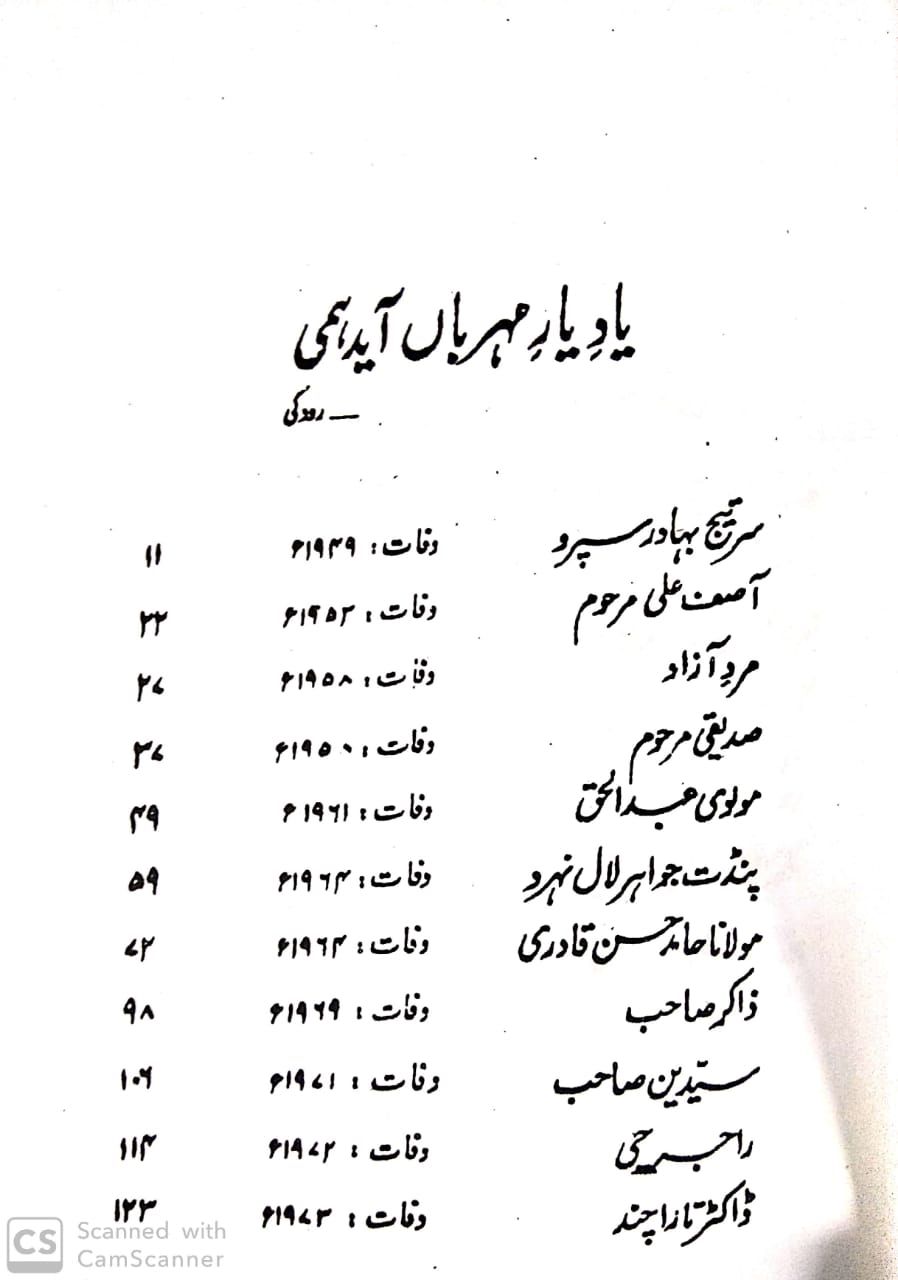 یادِ یارِ مہرباں آید ہمی
— رودکی
سر تیج بہادر سپرو وفات: ۱۹۴۹ء ۱۱
آصف علی مرحوم وفات: ۱۹۵۳ء ۲۲
مردِ آزاد وفات: ۱۹۵۸ء ۲۷
صدیقی مرحوم وفات: ۱۹۵۰ء ۳۷
مولوی عبدالحق وفات: ۱۹۶۱ء ۴۹
پنڈت جواہر لال نہرو وفات: ۱۹۶۴ء ۵۹
مولانا حامد حسن قادری وفات: ۱۹۶۴ء ۷۲
ذاکر صاحب وفات: ۱۹۶۹ء ۹۸
سیّدین صاحب وفات: ۱۹۷۱ء ۱۰۶
راجہ جی وفات: ۱۹۷۲ء ۱۱۴
ڈاکٹر تارا چند وفات: ۱۹۷۳ء ۱۲۳
CS Scanned with
CamScanner